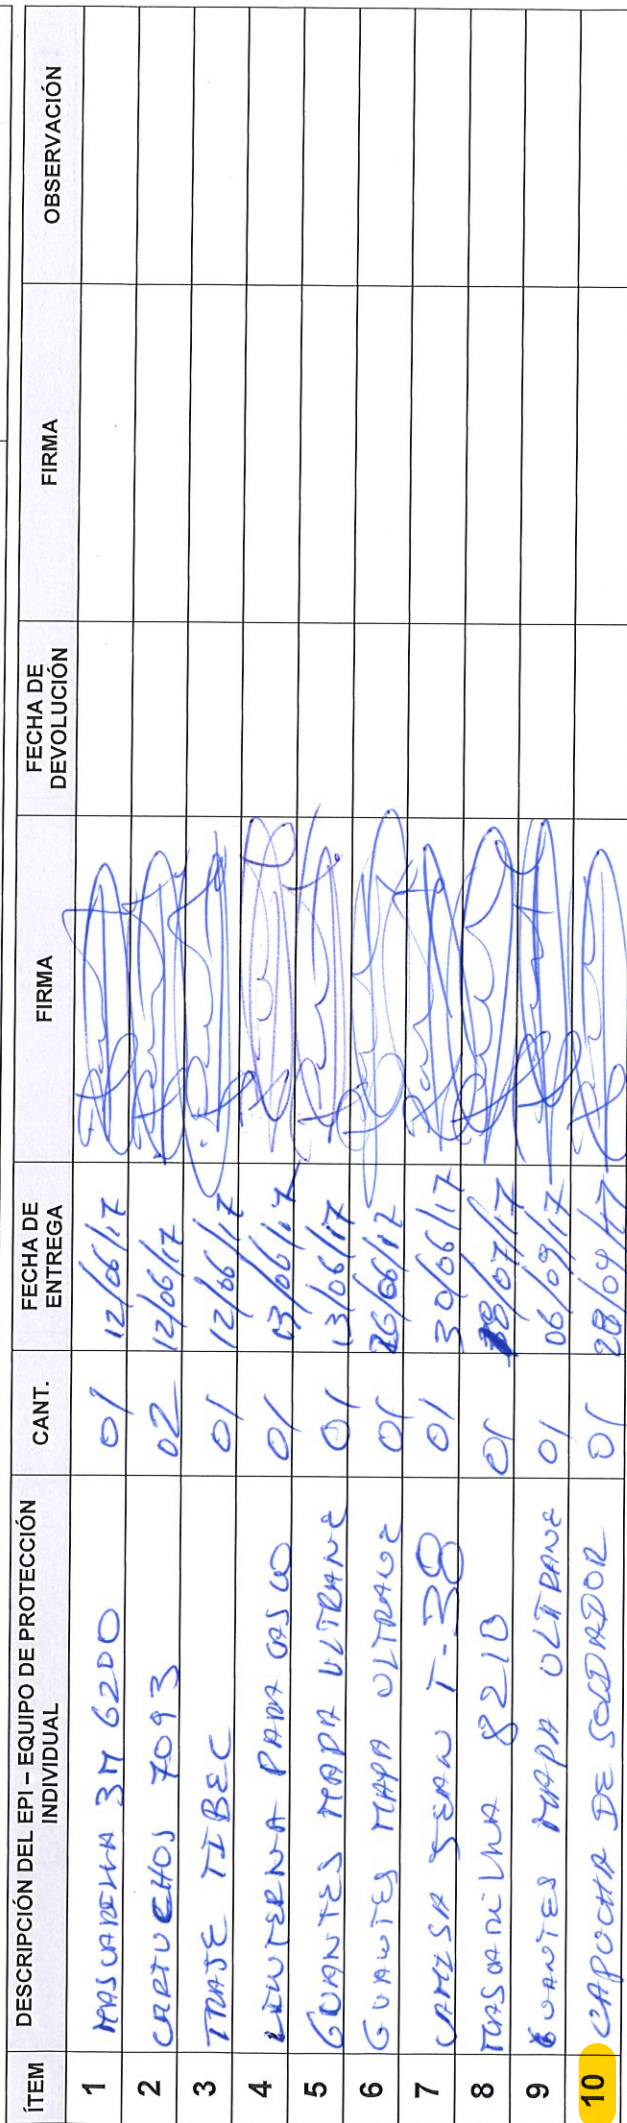 ÍTEM DESCRIPCIÓN DEL EPI – EQUIPO DE PROTECCIÓN INDIVIDUAL CANT. FECHA DE ENTREGA FIRMA FECHA DE DEVOLUCIÓN FIRMA OBSERVACIÓN
1 MASCARILLA 3M 6200 01 12/06/17
2 CARTUCHOS 7093 02 12/06/17
3 TRAJE TIBEC 01 12/06/17
4 LINTERNA PARA CASCO 01 13/06/17
5 GUANTES MAPA ULTRANE 01 13/06/17
6 GUANTES MAPA ULTRANE 01 26/06/17
7 CAMISA JEAN T-38 01 30/06/17
8 MASCARILLA 8210 01 /07/17
9 GUANTES MAPA ULTRANE 01 06/09/17
10 CAPUCHA DE SOLDADOR 01 28/09/17